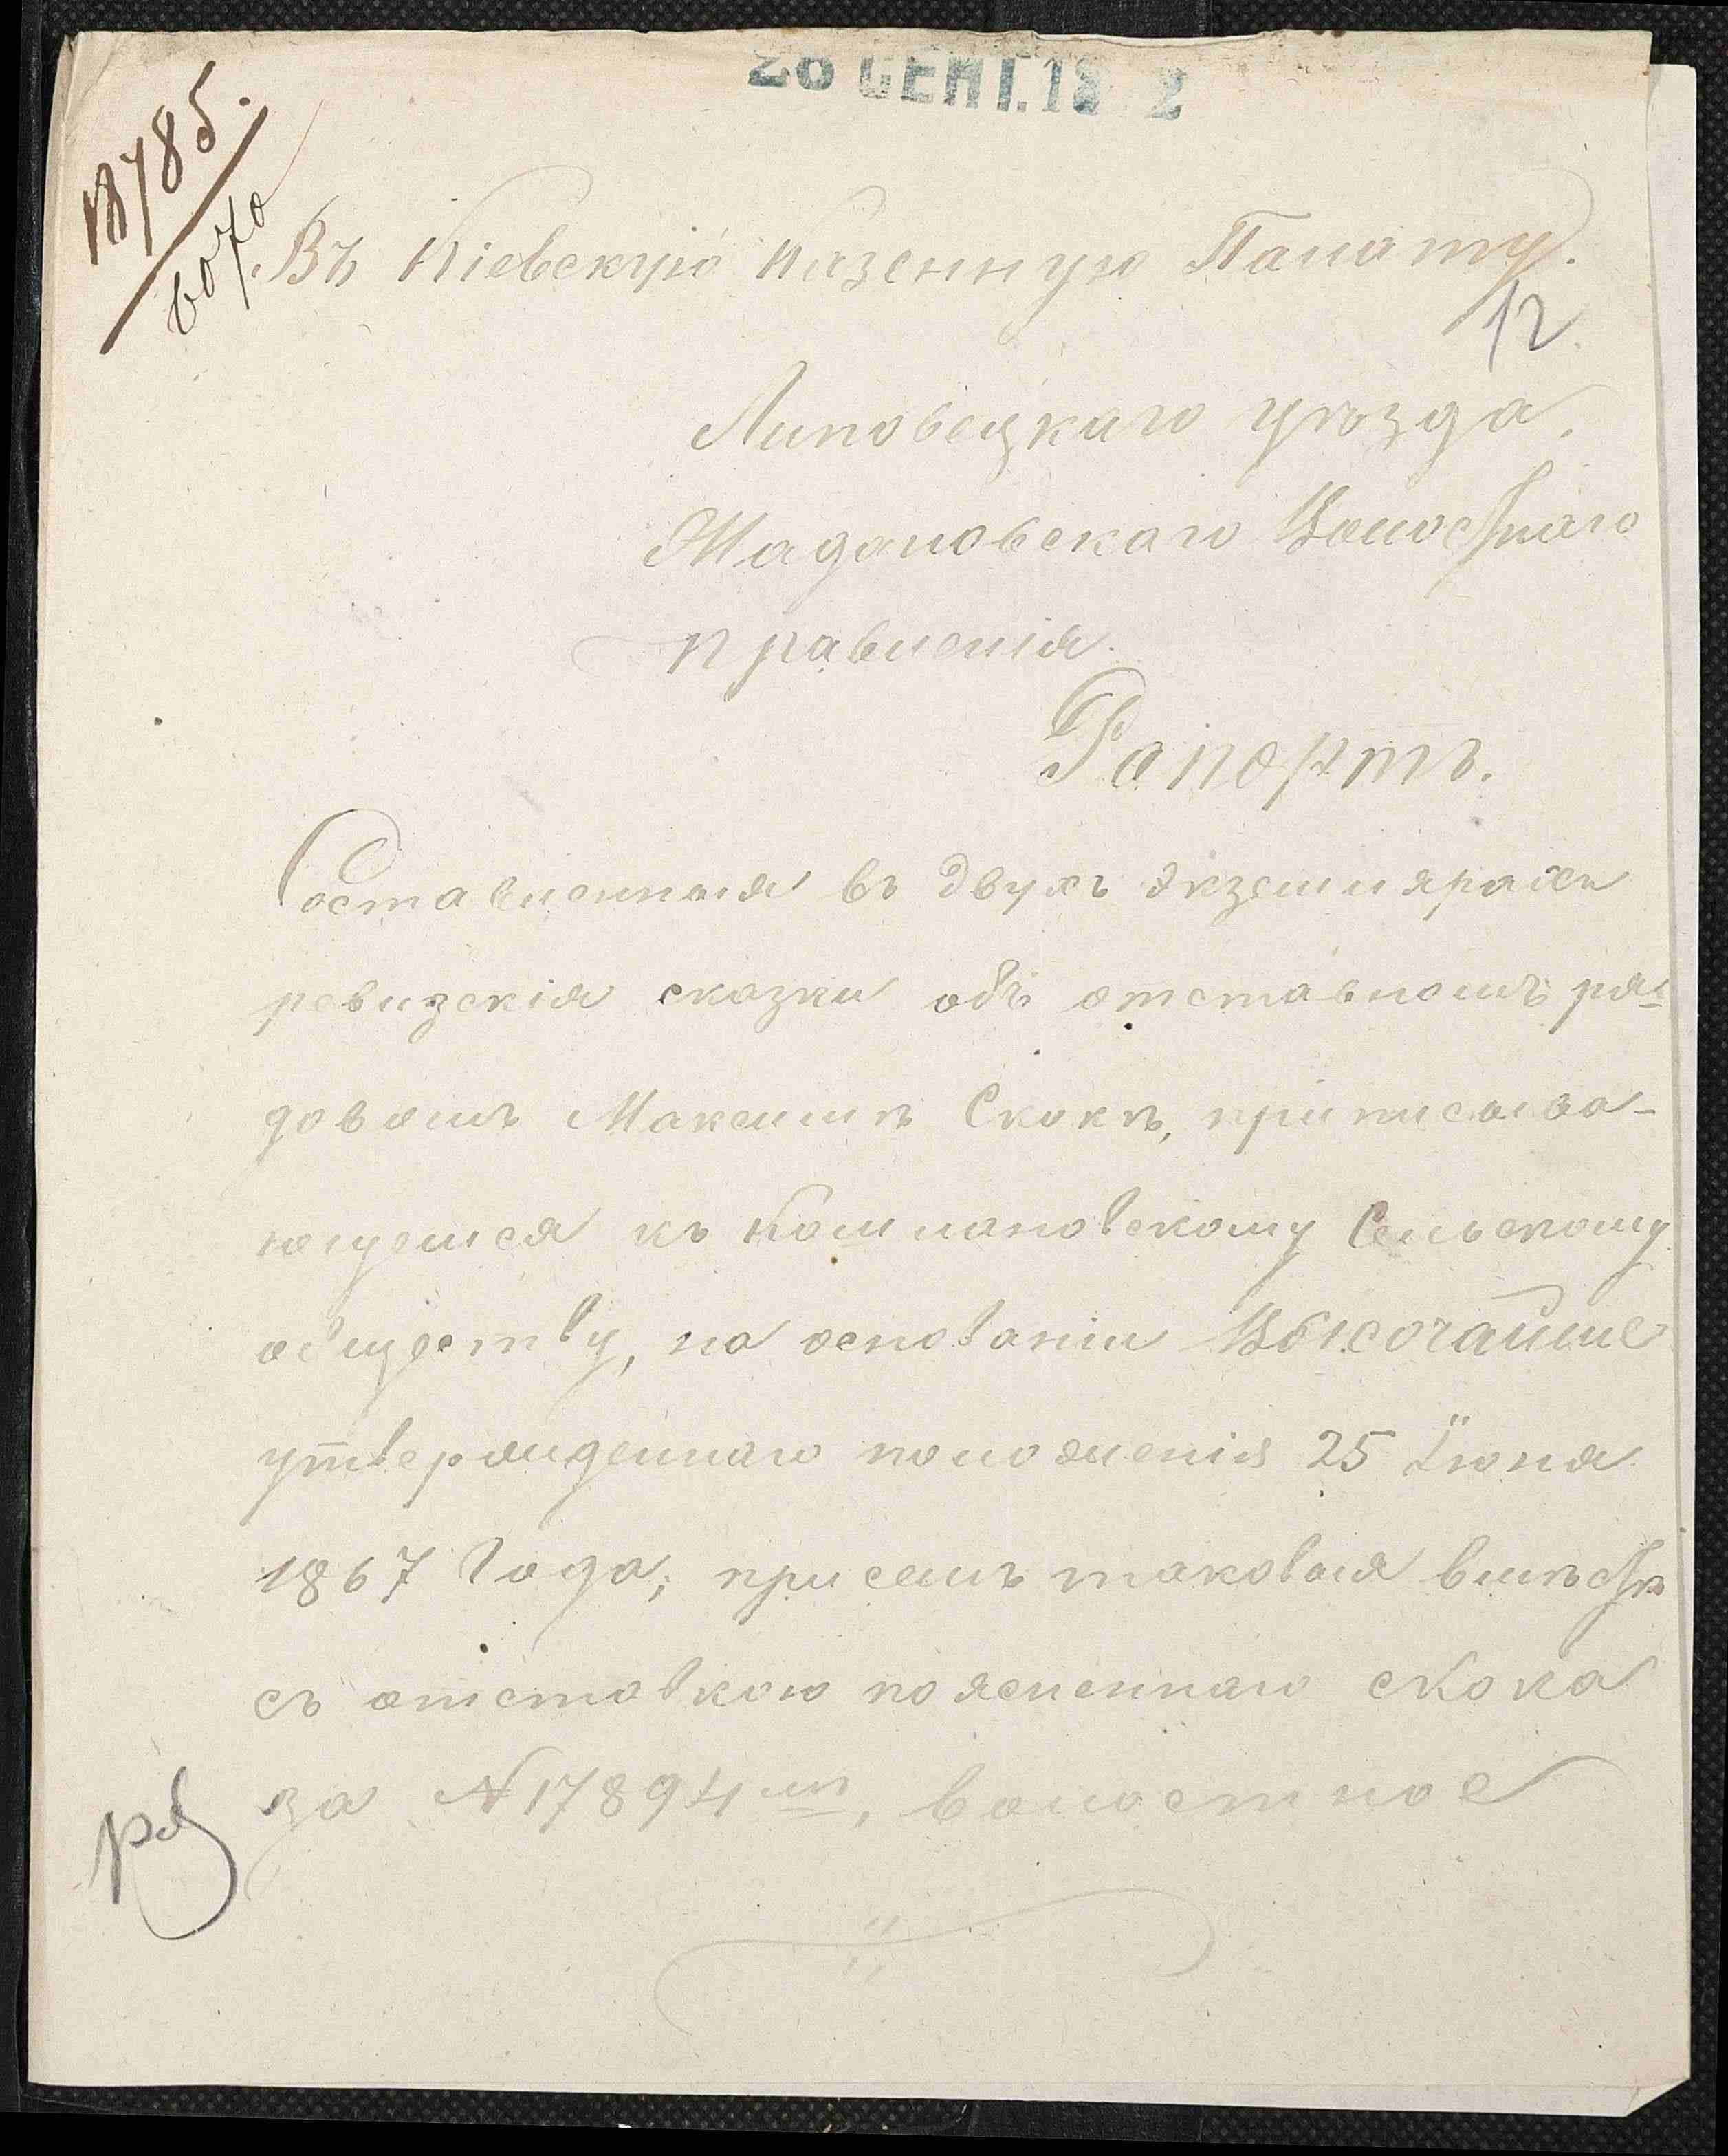 26 СЕНТ. 18 2
18785.
6070
Въ Кіевскую Казенную Палату.
12
Липовецкаго уѣзда,
Жадановскаго Волостнаго
правленія.
Рапортъ.
Составленныя въ двухъ экземплярахъ
ревизскія сказки объ отставномъ ря-
довомъ Максимѣ Скокѣ, приписыва-
ющемся къ Кошлановскому Сельскому
обществу, на основаніи Высочайше
утвержденнаго положенія 25 Іюня
1867 года, при семъ таковыя вмѣстѣ
съ отставкою поясненнаго Скока
за №17894мъ, волостное